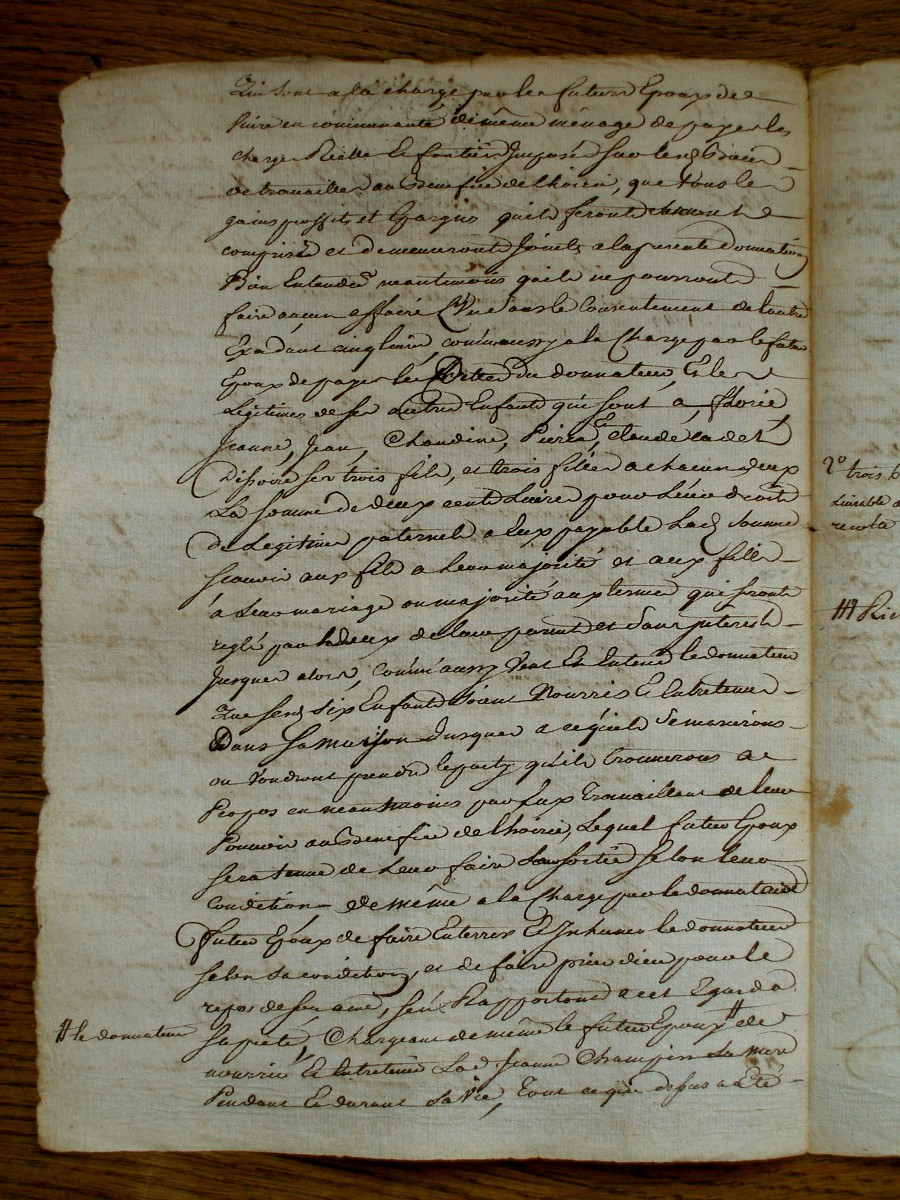 qui sont a la charge par les futurs Epoux de
vivre en communauté de même ménage de payer les
charges Réelles et fontières Imposés sur lesd. Biens
de travailler au Benefice de lhoirie, que tous les
gains proffits et Epargnes quils feront
comprises et demeureront Joints a la presente donnation
Bien Entendu neantmoins quils ne pourront
faire aucun affaire l'un sans le Consentement de lautre
Exedant cinq livres, comm'aussy a la Charge par le futur
Epoux de payer les Dettes du donnateur, Et les
Legitimes de ses autres Enfants qui sont a, florie
Jeanne, Jean, Claudine, Pierre, Et claude cadet
Dispoire ses trois fils, et trois filles a chacun deux
La somme de deux cents Livres pour Leurs droits
de Legitime paternels a Eux payable Lad. somme
scavoir aux fils a leur majorité et aux filles
a Leur mariage ou majorité aux termes qui seront
reglé par les deux de leurs parents et sans jnterests
Jusques alors, comm'aussy veut Et Entend le donnateur
Que sesd. six Enfants soient Nourris Et Entretenus
Dans sa maison Jusques a ce quils se marieront
ou voudront prendre le party quils trouveront a
Propos en neantmoins par Eux Travaillant de leur
Pouvoir au Benefice de lhoirie, Lequel futur Epoux
sera tenu de Leur faire sortie selon leur
condition de même a la Charge par le donnataire
futur Epoux de faire Enterrer Et Jnhumer le donnateur
selon sa condition, et de faire prier dieu pour le
repos de son ame, s'en Rapportant a cet Egard a
sa pieté, Chargeant de même le futur Epoux # de
# le donnateur
nourrir Et Entretenir Lad. Jeanne Champin sa mere
Pendant Et durant sa vie, Tout ce que dessus a Eté
2° trois
recolte
### Rie